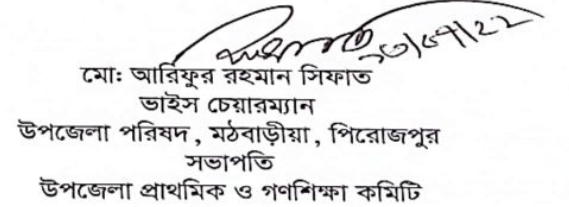 মোঃ আরিফুর রহমান সিফাত
ভাইস চেয়ারম্যান
উপজেলা পরিষদ, মঠবাড়ীয়া, পিরোজপুর
সভাপতি
উপজেলা প্রাথমিক ও গণশিক্ষা কমিটি